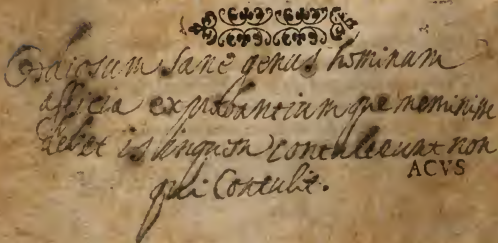 Odiosum sane genus hominum
officia exprobantium que meminisse
debet is inquem contulerunt non
ACVS
qui Contulit.